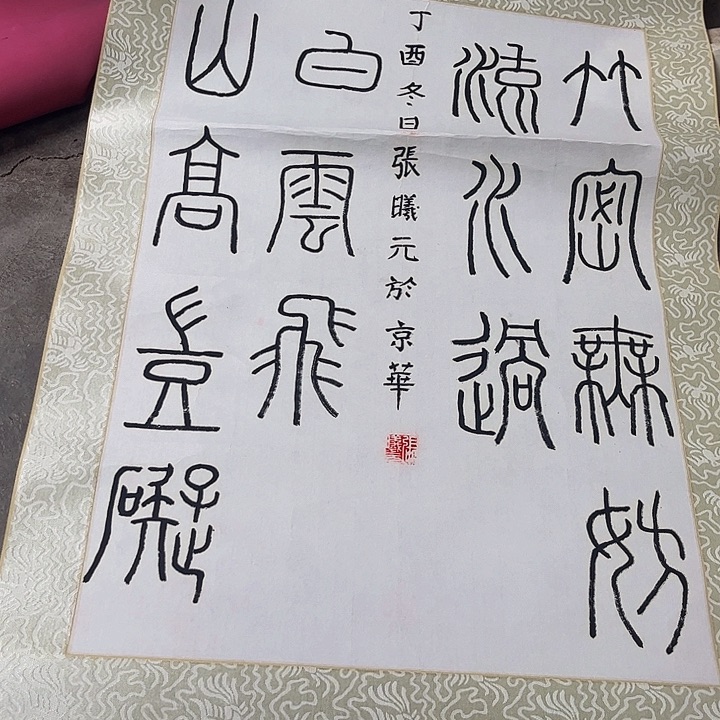 竹密無妨
流水過
山高豈礙
白雲飛
丁酉冬日張曦元於京華